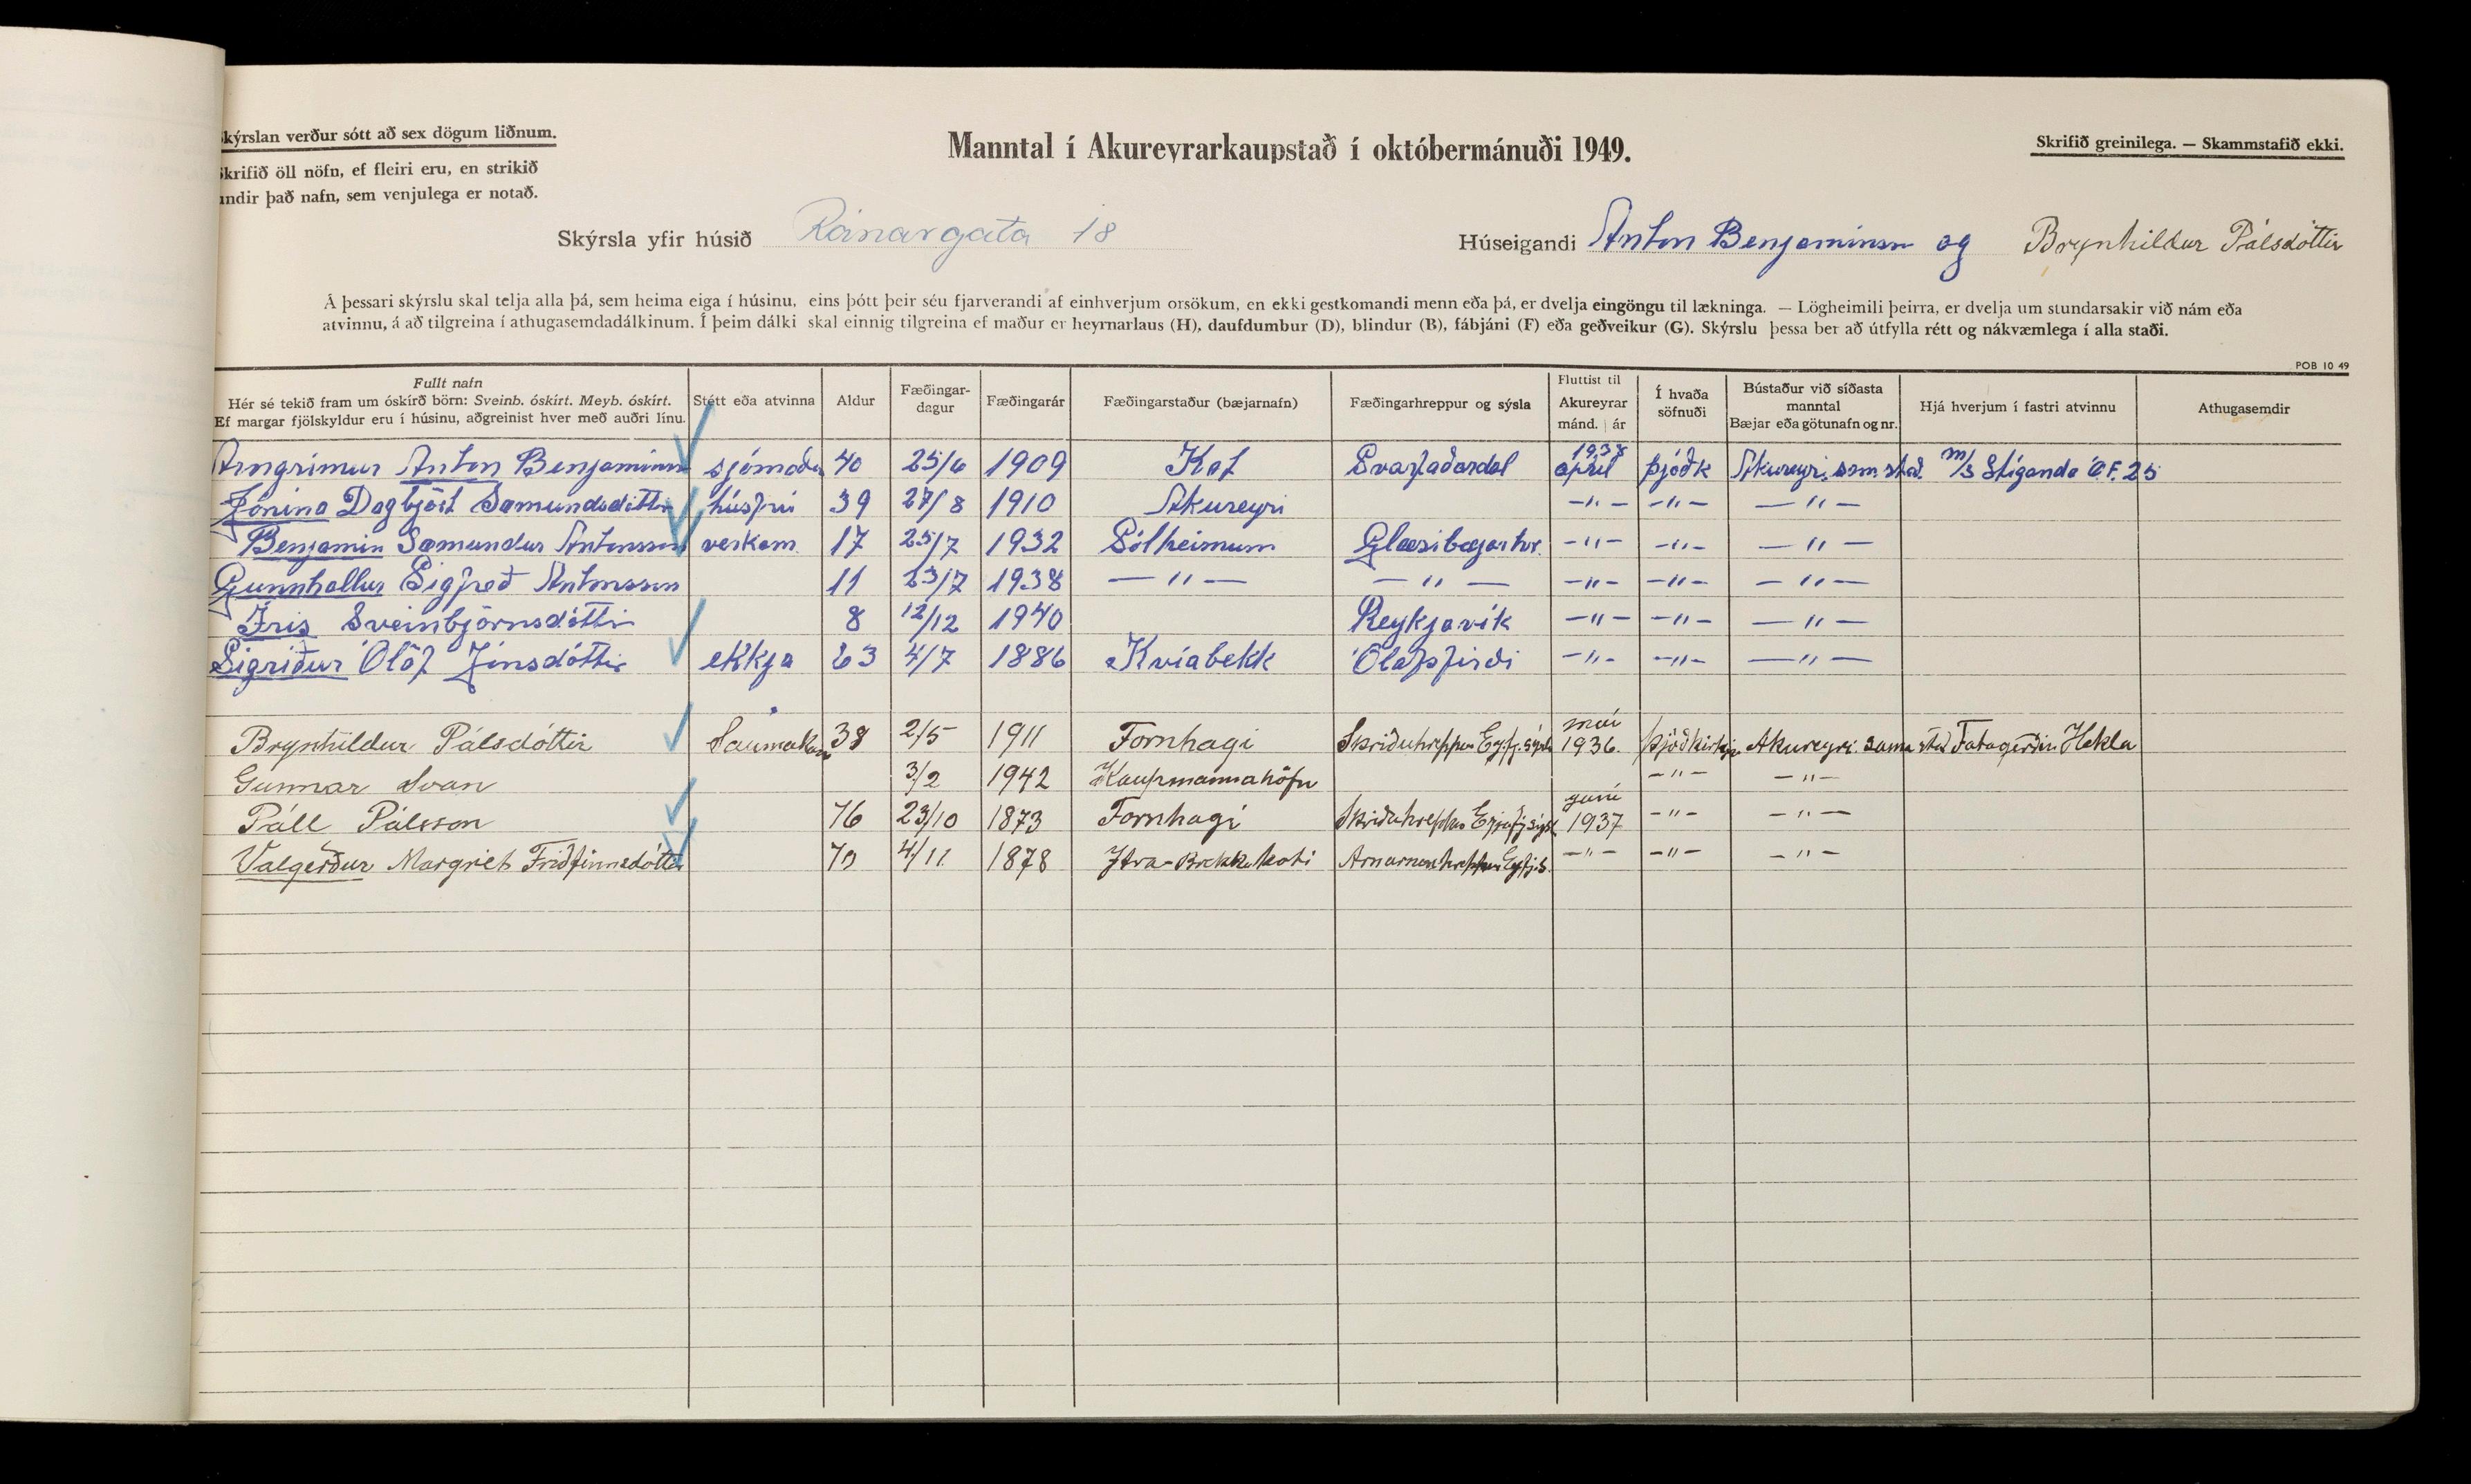 Skýrslan verður sótt að sex dögum liðnum.
Skrifið öll nöfn, ef fleiri eru, en strikið
undir það nafn, sem venjulega er notað.
Manntal í Akureyrarkaupstað í októbermánuði 1949.
Skrifið greinilega. — Skammstafið ekki.
Skýrsla yfir húsið Ránargata 18
Húseigandi Anton Benjamínsson og Brynhildur Pálsdóttir
Á þessari skýrslu skal telja alla þá, sem heima eiga í húsinu, eins þótt þeir séu fjarverandi af einhverjum orsökum, en ekki gestkomandi menn eða þá, er dvelja eingöngu til lækninga. — Lögheimili þeirra, er dvelja um stundarsakir við nám eða
atvinnu, á að tilgreina í athugasemdadálkinum. Í þeim dálki skal einnig tilgreina ef maður er heyrnarlaus (H), daufdumbur (D), blindur (B), fábjáni (F) eða geðveikur (G). Skýrslu þessa ber að útfylla rétt og nákvæmlega í alla staði.
POB 10 49
Fullt nafn
Hér sé tekið fram um óskírð börn: Sveinb. óskírt. Meyb. óskírt.
Ef margar fjölskyldur eru í húsinu, aðgreinist hver með auðri línu.
Stétt eða atvinna
Aldur
Fæðingar-
dagur
Fæðingarár
Fæðingarstaður (bæjarnafn)
Fæðingarhreppur og sýsla
Fluttist til
Akureyrar
mánd. | ár
Í hvaða
söfnuði
Bústaður við síðasta
manntal
Bæjar eða götunafn og nr.
Hjá hverjum í fastri atvinnu
Athugasemdir
Arngrímur Anton Benjamínss sjómaður 40 25/6 1909 Kot Svarfaðardal 1938 apríl þjóðk Akureyri sam stað m/s Stígandi ÓF. 25
Jónína Dagbjört Sæmundsdóttir húsfrú 39 27/8 1910 Akureyri —"— —"— —"—
Benjamín Sæmundur Antonsson verkam. 17 25/7 1932 Sólheimum Glæsibæjarhr. —"— —"— —"—
Gunnhallur Sigfreð Antonsson 11 23/7 1938 —"— —"— —"— —"— —"—
Íris Sveinbjörnsdóttir 8 12/12 1940 Reykjavík —"— —"— —"—
Sigríður Ólöf Jónsdóttir ekkja 63 4/7 1886 Kvíabekk Ólafsfirði —"— —"— —"—
Brynhildur Pálsdóttir Saumakona 38 2/5 1911 Fornhagi Skriðuhreppur Eyfj.sýslu maí 1936. þjóðkirkja Akureyri sama stað Fatagerðin Hekla
Gunnar Svan 3/2 1942 Kaupmannahöfn —"— —"—
Páll Pálsson 76 23/10 1873 Fornhagi Skriðuhreppur Eyjafj.sýsl. júní 1937 —"— —"—
Valgerður Margrét Friðfinnsdóttir 70 4/11 1878 Ytra-Brekkukoti Arnarneshreppur Eyfj.s. —"— —"— —"—